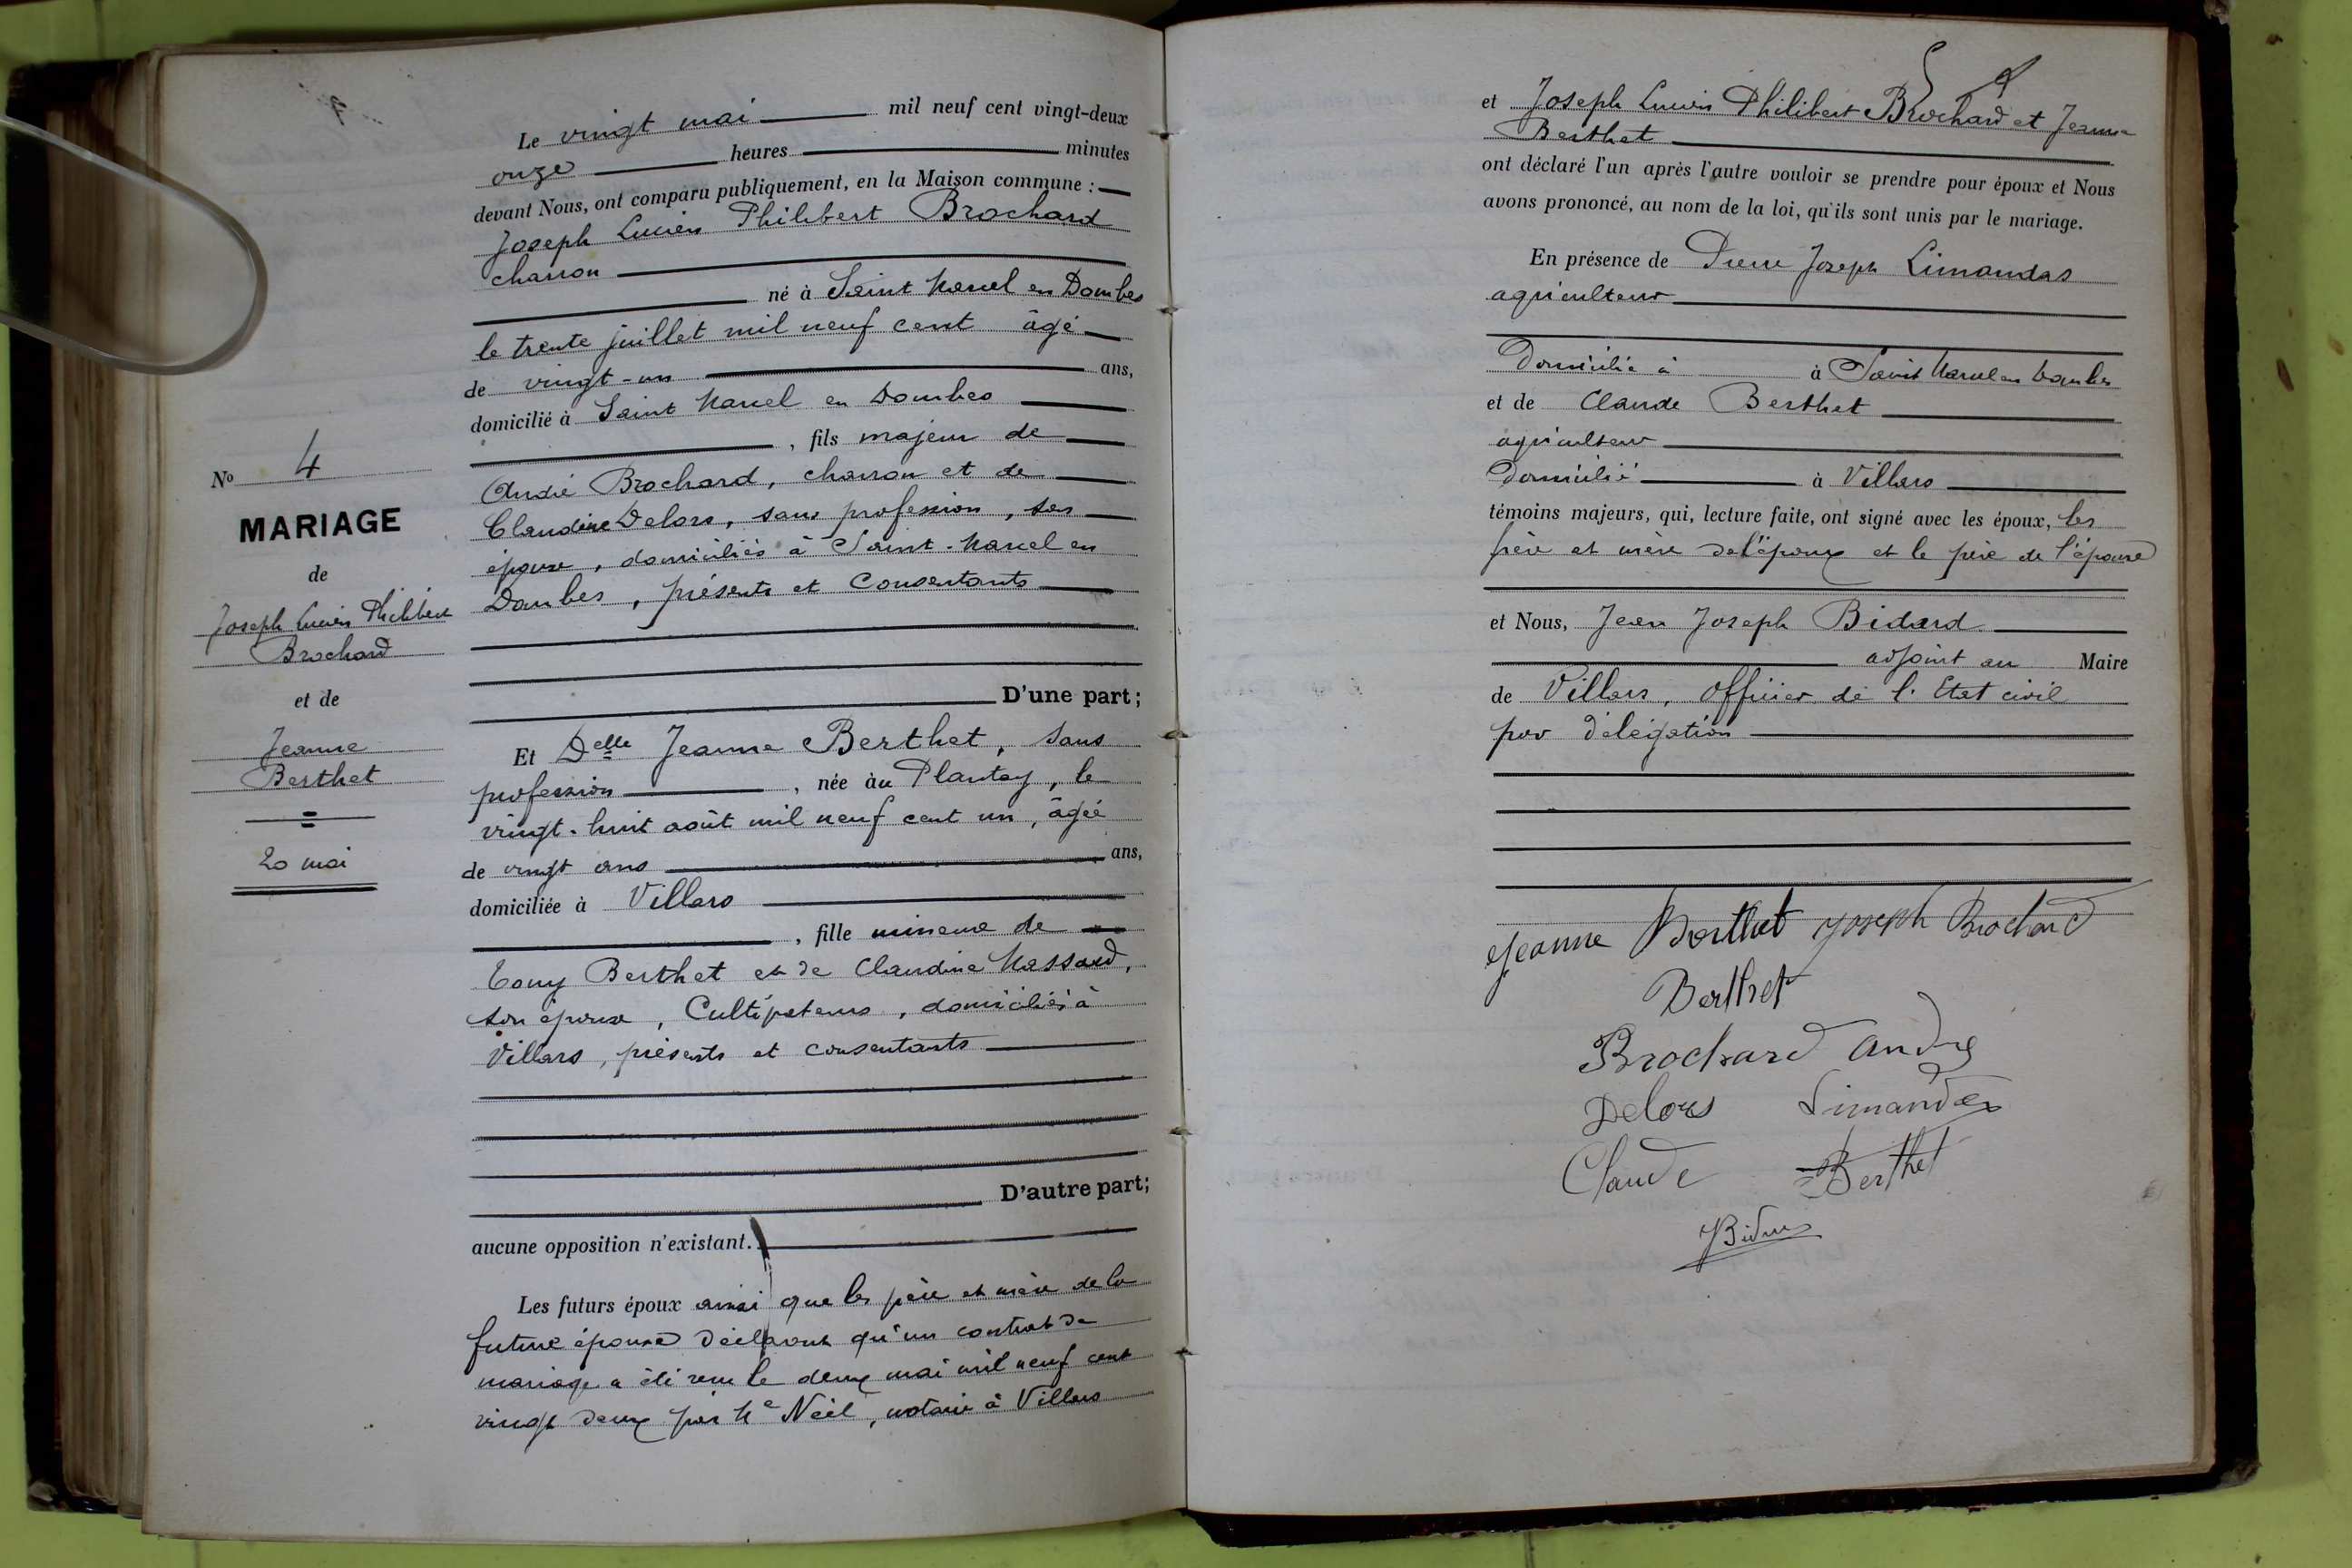 Le vingt mai mil neuf cent vingt-deux
onze heures minutes
devant Nous, ont comparu publiquement, en la Maison commune :
Joseph Lucien Philibert Brochard
charron
né à Saint Marcel en Dombes
le trente juillet mil neuf cent âgé
de vingt-un ans,
domicilié à Saint Marcel en Dombes
, fils majeur de
André Brochard, charron et de
Claudine Delors, sans profession, son
épouse, domiciliés à Saint-Marcel en
Dombes, présents et consentants
D'une part;
Et Delle Jeanne Berthet, sans
profession, née au Plantay, le
vingt-huit août mil neuf cent un, âgée
de vingt ans ans,
domiciliée à Villars
, fille mineure de
Tony Berthet et de Claudine Massard,
son épouse, Cultivateurs, domiciliés à
Villars, présents et consentants
D'autre part;
aucune opposition n'existant.
Les futurs époux ainsi que les père et mère de la
future épouse déclarent qu'un contrat de
mariage a été reçu le deux mai mil neuf cent
vingt deux par Me Néel, notaire à Villars
No 4
MARIAGE
de
Joseph Lucien Philibert
Brochard
et de
Jeanne
Berthet
20 mai
et Joseph Lucien Philibert Brochard et Jeanne
Berthet
ont déclaré l'un après l'autre vouloir se prendre pour époux et Nous
avons prononcé, au nom de la loi, qu'ils sont unis par le mariage.
En présence de Pierre Joseph Limandas
agriculteur
Domicilié à à Saint Marcel en Dombes
et de Claude Berthet
agriculteur
Domicilié à Villars
témoins majeurs, qui, lecture faite, ont signé avec les époux, les
père et mère de l'époux et le père de l'épouse
et Nous, Jean Joseph Bidard
adjoint au Maire
de Villars, officier de l'Etat civil
par délégation
Jeanne Berthet Joseph Brochard
Berthet
Brochard André
Delors Limandas
Claude Berthet